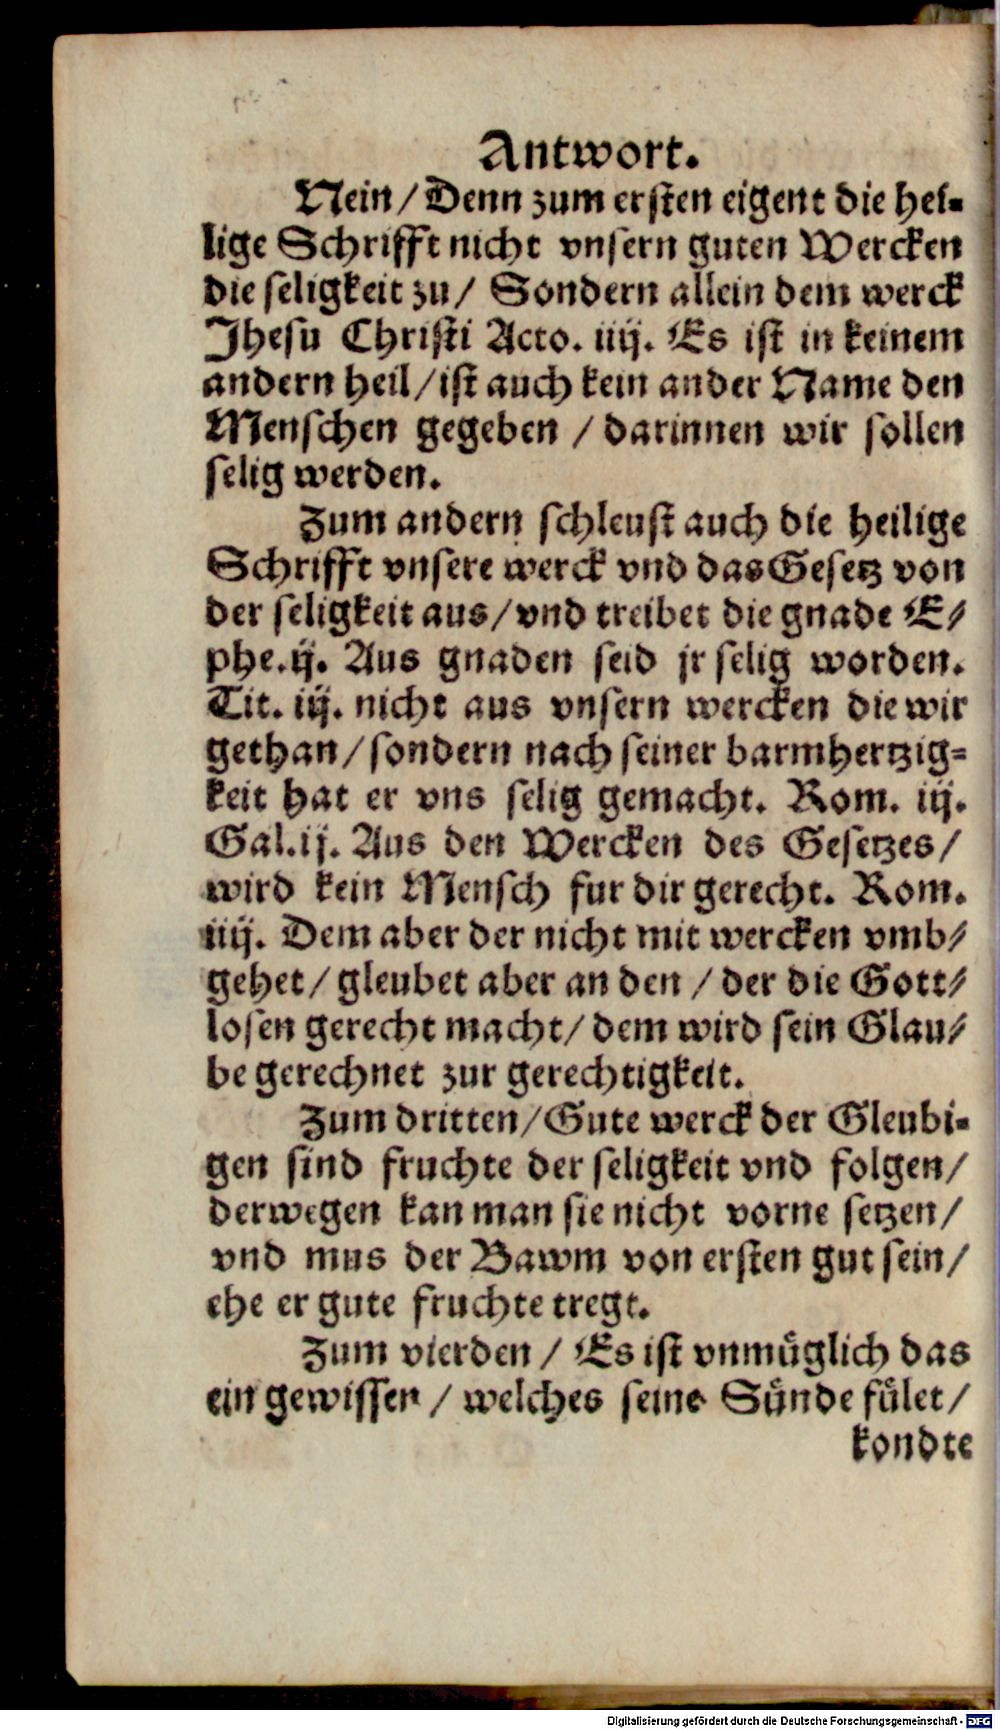 Antwort.
Nein / Denn zum ersten eigent die hei-
lige Schrifft nicht vnsern guten Wercken
die seligkeit zu / Sondern allein dem werck
Jhesu Christi Acto. iiij. Es ist in keinem
andern heil / ist auch kein ander Name den
Menschen gegeben / darinnen wir sollen
selig werden.
Zum andern schleust auch die heilige
Schrifft vnsere werck vnd das Gesetz von
der seligkeit aus / vnd treibet die gnade E-
phe. ij. Aus gnaden seid jr selig worden.
Tit. iij. nicht aus vnsern wercken die wir
gethan / sondern nach seiner barmhertzig-
keit hat er vns selig gemacht. Rom. iij.
Gal. ij. Aus den Wercken des Gesetzes /
wird kein Mensch fur dir gerecht. Rom.
iiij. Dem aber der nicht mit wercken vmb-
gehet / gleubet aber an den / der die Gott-
losen gerecht macht / dem wird sein Glau-
be gerechnet zur gerechtigkeit.
Zum dritten / Gute werck der Gleubi-
gen sind fruchte der seligkeit vnd folgen /
derwegen kan man sie nicht vorne setzen /
vnd mus der Bawm von ersten gut sein /
ehe er gute fruchte tregt.
Zum vierden / Es ist vnmüglich das
ein gewissen / welches seine Sünde fület /
kondte
Digitalisierung gefördert durch die Deutsche Forschungsgemeinschaft - DFG